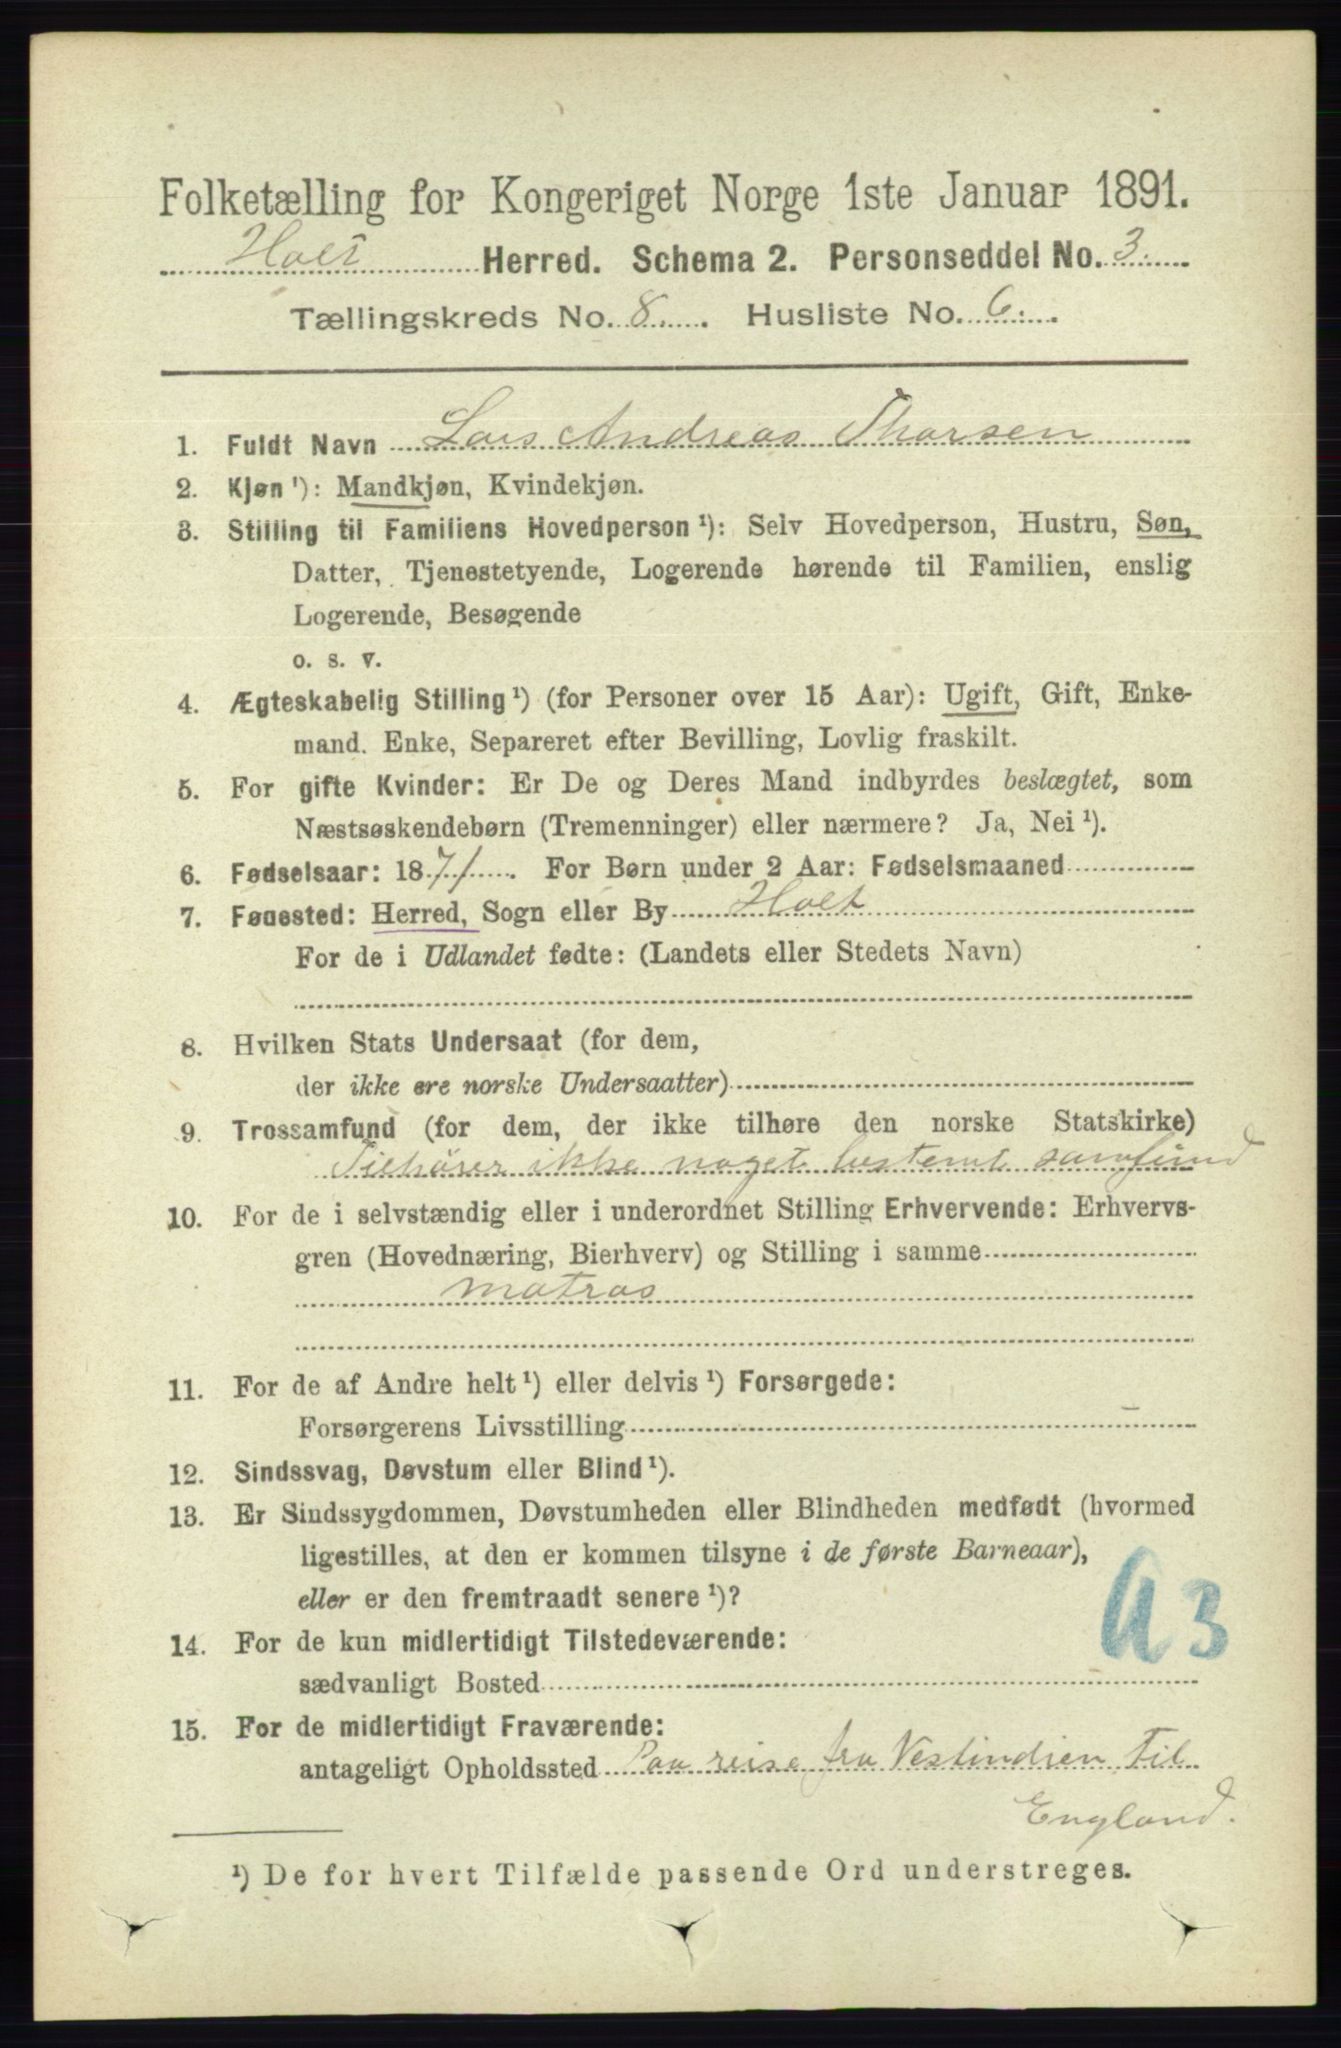 Folketælling for Kongeriget Norge 1ste Januar 1891.
Holt Herred. Schema 2. Personseddel No. 3.
Tællingskreds No. 8. Husliste No. 6.
1. Fuldt Navn Lars Andreas Thorsen
2. Kjøn ¹): Mandkjøn, Kvindekjøn.
3. Stilling til Familiens Hovedperson ¹): Selv Hovedperson, Hustru, Søn,
Datter, Tjenestetyende, Logerende hørende til Familien, enslig
Logerende, Besøgende
o. s. v.
4. Ægteskabelig Stilling ¹) (for Personer over 15 Aar): Ugift, Gift, Enke-
mand. Enke, Separeret efter Bevilling, Lovlig fraskilt.
5. For gifte Kvinder: Er De og Deres Mand indbyrdes beslægtet, som
Næstsøskendebørn (Tremenninger) eller nærmere? Ja, Nei ¹).
6. Fødselsaar: 1871. For Børn under 2 Aar: Fødselsmaaned
7. Føuested: Herred, Sogn eller By Holt
For de i Udlandet fødte: (Landets eller Stedets Navn)
8. Hvilken Stats Undersaat (for dem,
der ikke ere norske Undersaatter)
9. Trossamfund (for dem, der ikke tilhøre den norske Statskirke)
Tilhører ikke noget bestemt samfund
10. For de i selvstændig eller i underordnet Stilling Erhvervende: Erhvervs-
gren (Hovednæring, Bierhverv) og Stilling i samme
matros
11. For de af Andre helt ¹) eller delvis ¹) Forsørgede:
Forsørgerens Livsstilling –
12. Sindssvag, Døvstum eller Blind ¹).
13. Er Sindssygdommen, Døvstumheden eller Blindheden medfødt (hvormed
ligestilles, at den er kommen tilsyne i de første Barneaar),
eller er den fremtraadt senere ¹)?
A3
14. For de kun midlertidigt Tilstedeværende:
sædvanligt Bosted
15. For de midlertidigt Fraværende:
antageligt Opholdssted Paa reise fra Vestindien Til
England.
¹) De for hvert Tilfælde passende Ord understreges.